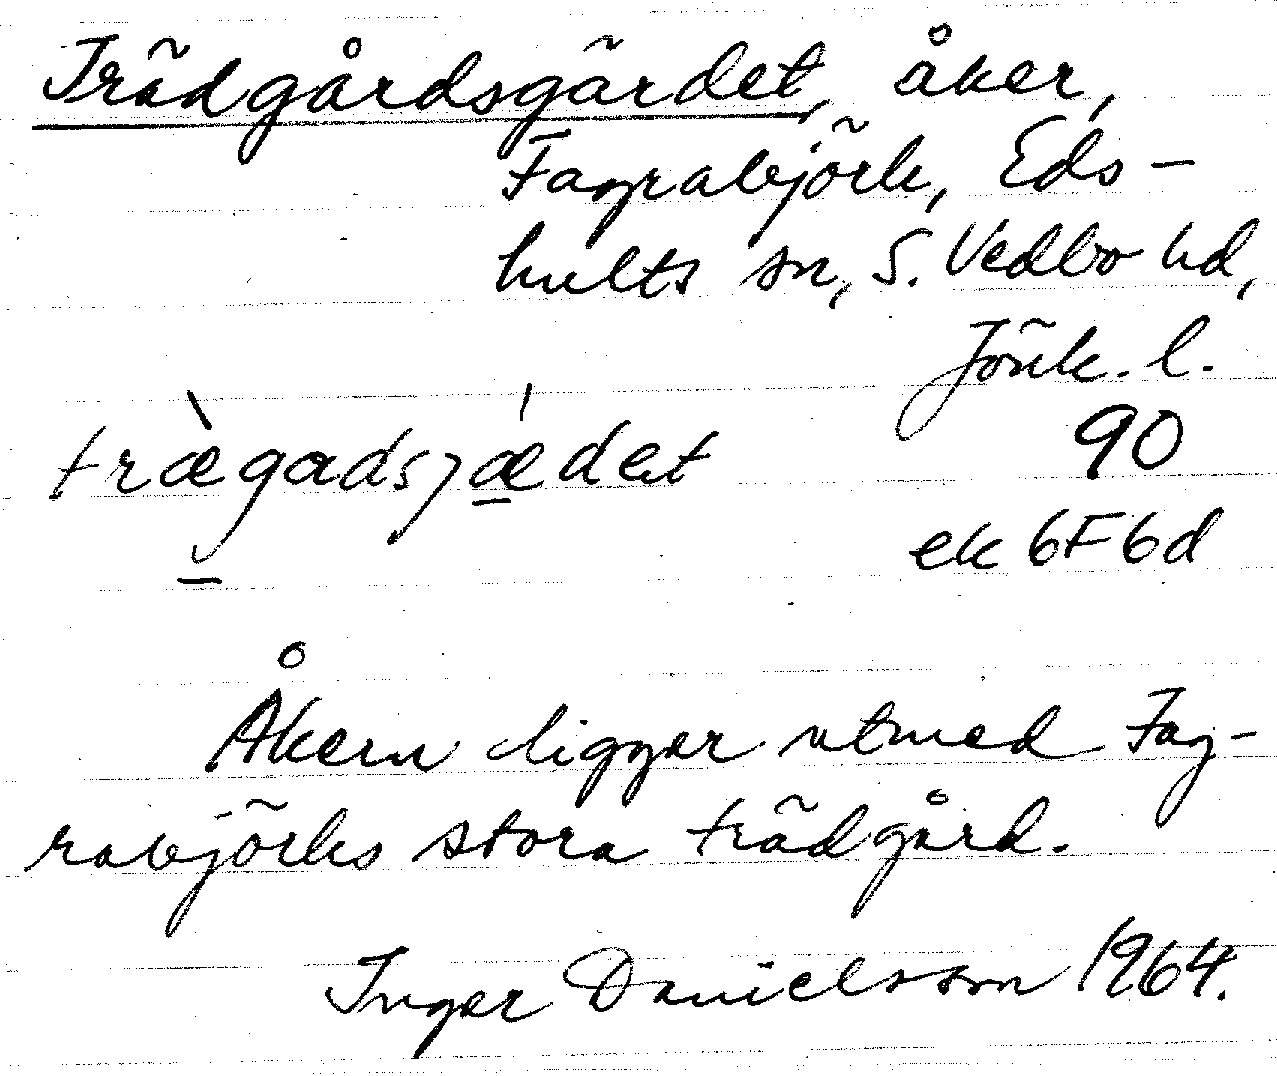 Trädgårdsgärdet, åker,
Fagrabjörk, Eds-
hults sn, S. Vedbo hd,
Jönk. l.
træ̀gadsjǽdet
90
ek 6F6d
Åkern ligger utmed Fag-
rabjörks stora trädgård.
Inger Danielsson 1964.